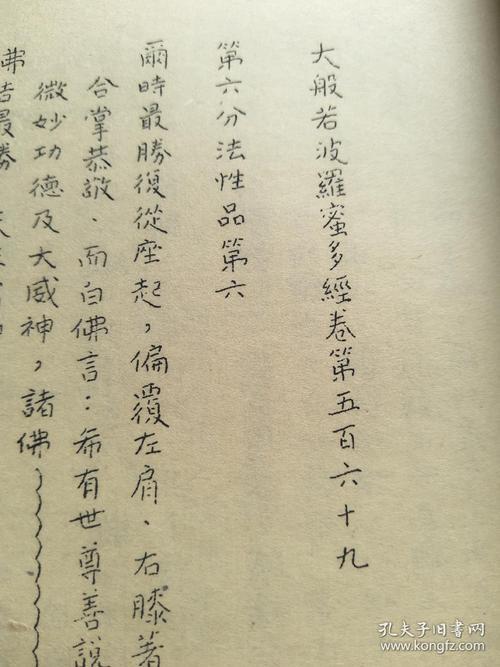 大般若波羅蜜多經卷第五百六十九
第六分法性品第六
爾時最勝復從座起，偏覆左肩、右膝著
合掌恭敬、而白佛言：希有世尊善說
微妙功德及大威神，諸佛
佛告最勝
孔夫子旧书网
www.kongfz.com